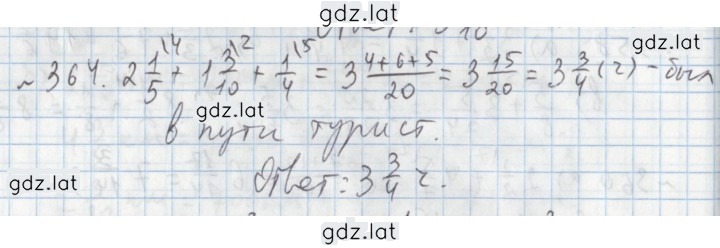 gdz.lat
№ 364. 2 1/5 \4 + 1 3/10 \2 + 1/4 \5 = 3 (4+6+5)/20 = 3 15/20 = 3 3/4 (г) - был
gdz.lat
в пути турист.
gdz.lat
Ответ: 3 3/4 г.
gdz.lat
gdz.lat